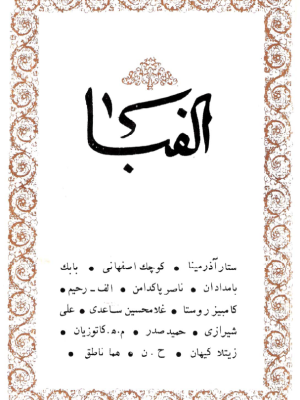 الفبا
ستار آذرمینا • کوچک اصفهانی • بابک
بامدادان • ناصر پاکدامن • الف - رحیم •
کامبیز روستا • غلامحسین ساعدی • علی
شیرازی • حمید صدر • م.ه. کاتوزیان •
زیتلا کیهان • ح. ن • هما ناطق •